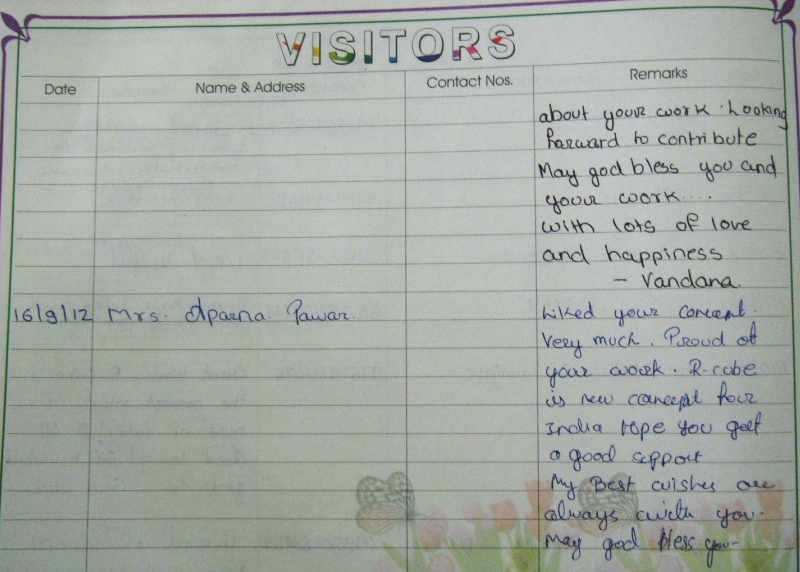 VISITORS
Date Name & Address Contact Nos. Remarks
about your work. Looking
forward to contribute
May god bless you and
your work....
with lots of love
and happiness
- Vandana.
16/9/12 Mrs. Aparna Pawar. Liked your concept.
Very much. Proud of
your work. R-cube
is new concept four
India Hope you get
a good support
My Best wishes are
always with you.
May god bless you-